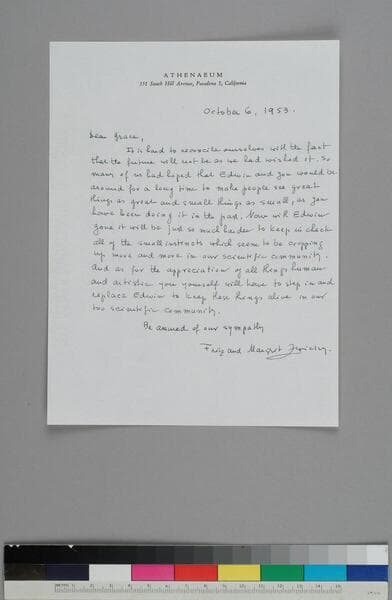 ATHENAEUM
551 South Hill Avenue, Pasadena 5, California
October 6, 1953.
Dear Grace,
It is hard to reconcile ourselves with the fact
that the future will not be as we had wished it. So
many of us had hoped that Edwin and you would be
around for a long time to make people see great
things as great and small things as small, as you
have been doing it in the past. Now with Edwin
gone it will be just so much harder to keep in check
all of the small instincts which seem to be cropping
up more and more in our scientific community.
And as for the appreciation of all things human
and artistic you yourself will have to step in and
replace Edwin to keep these things alive in our
too scientific community.
Be assured of our sympathy
Fritz and Margrit Zwicky.